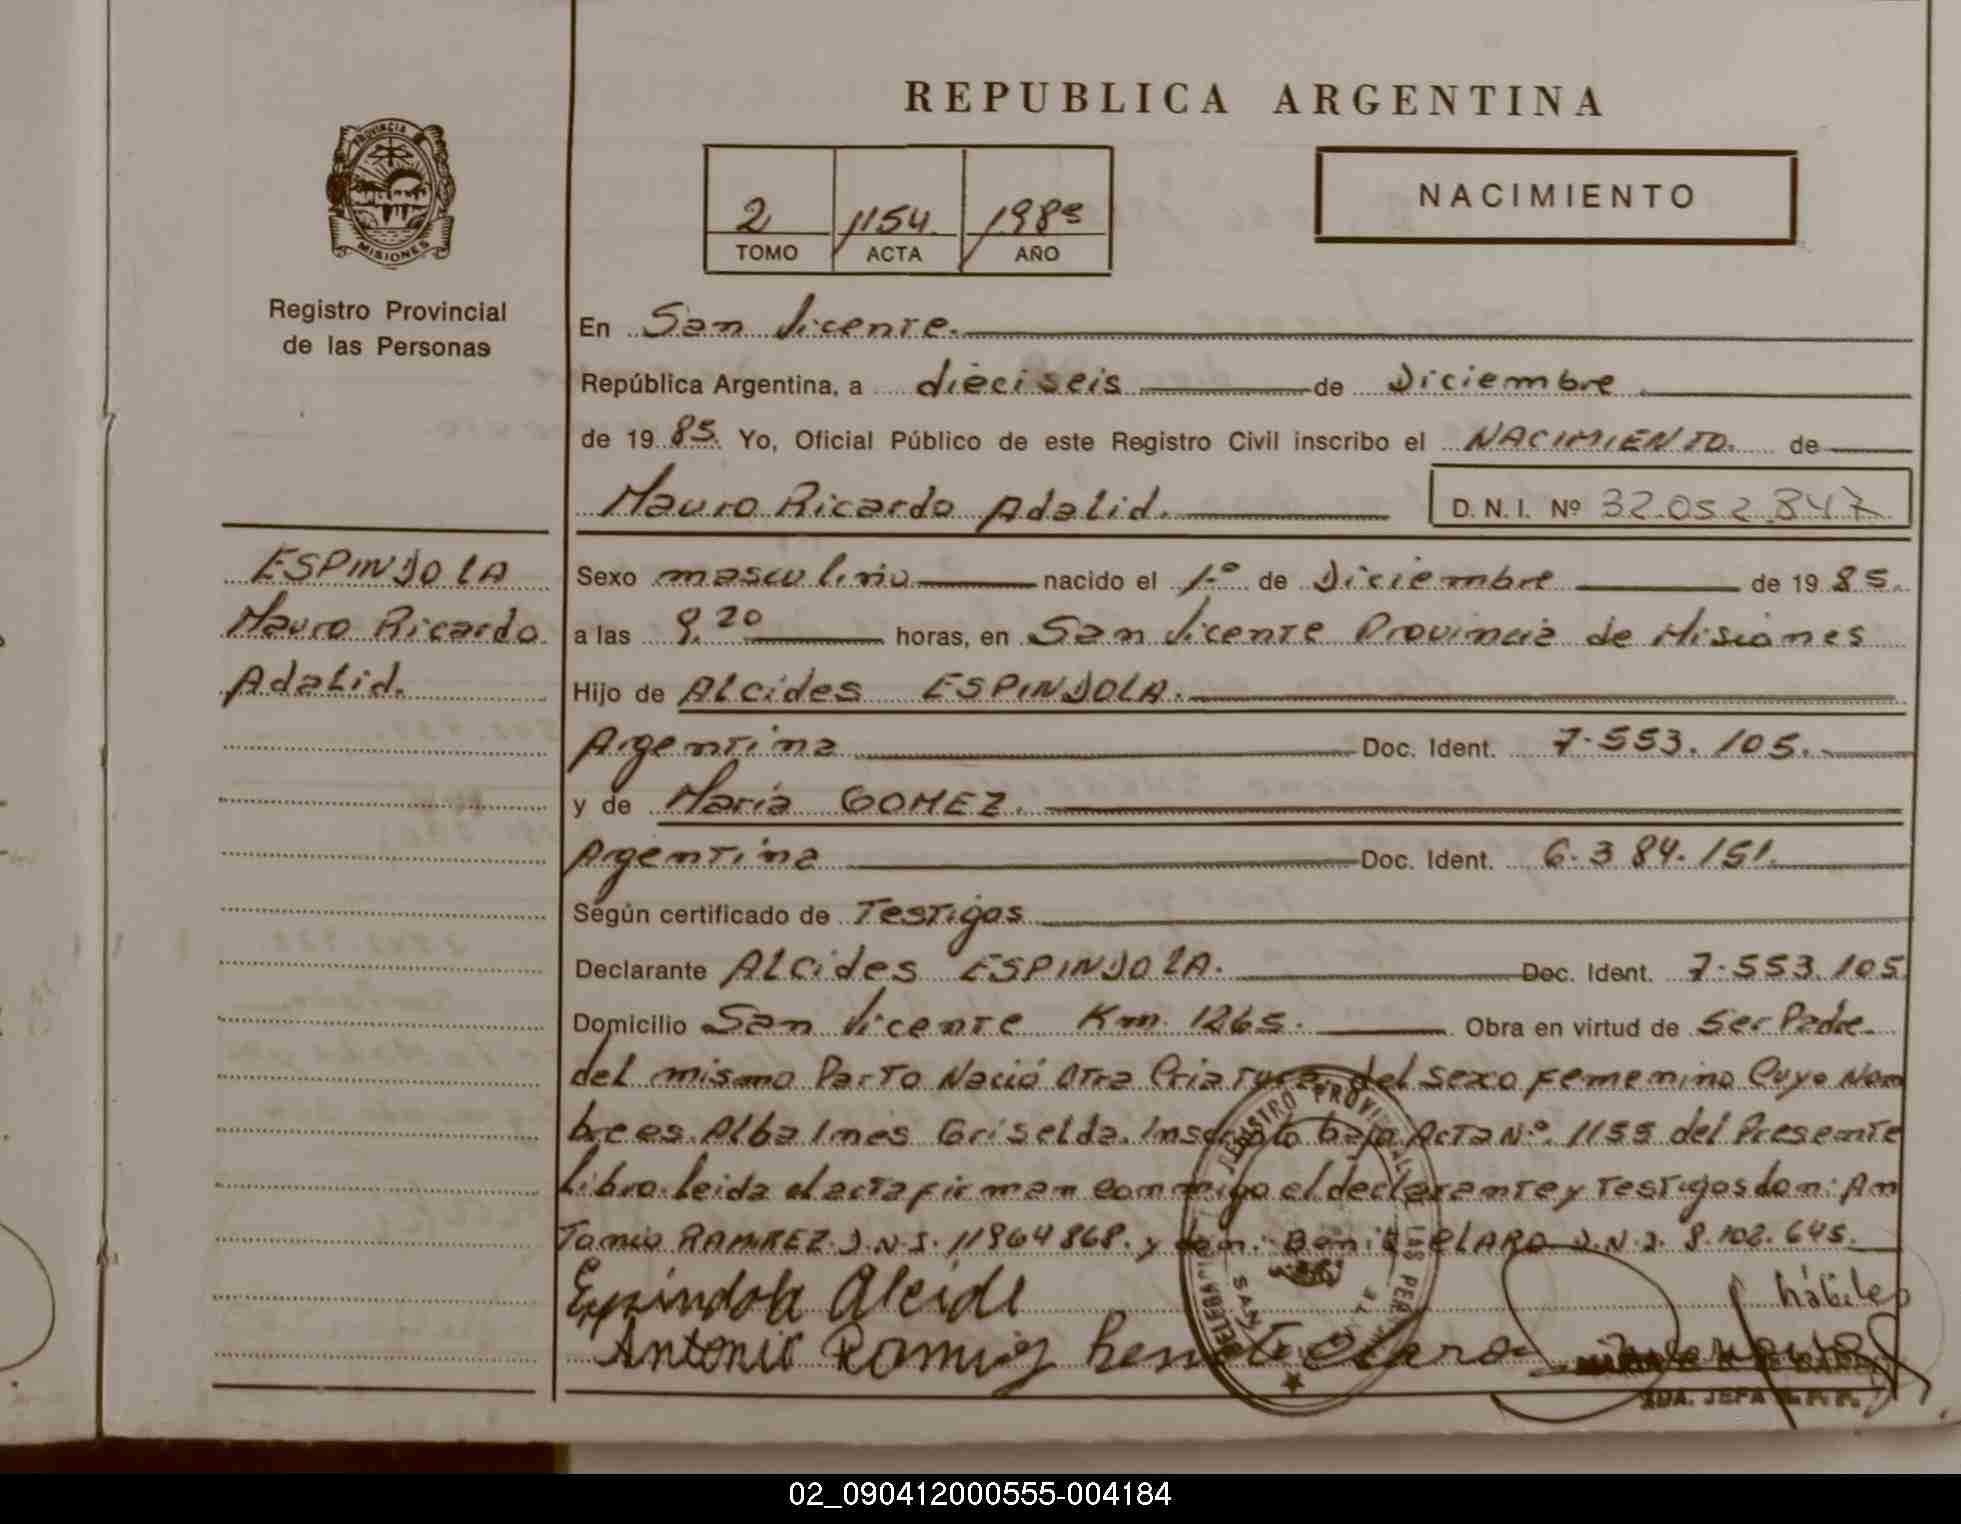 REPUBLICA ARGENTINA
PROVINCIA
MISIONES
Registro Provincial
de las Personas
2 1154 1985
TOMO ACTA AÑO
NACIMIENTO
En San Vicente.
República Argentina, a dieciseis de Diciembre
de 1985. Yo, Oficial Público de este Registro Civil inscribo el NACIMIENTO. de
Mauro Ricardo Adalid. D. N. I. Nº 32.052.847
ESPINDOLA
Mauro Ricardo
Adalid.
Sexo masculino nacido el 1º de Diciembre de 1985.
a las 9.20 horas, en San Vicente Provincia de Misiones
Hijo de Alcides ESPINDOLA.
Argentina Doc. Ident. 7.553.105.
y de Maria GOMEZ.
Argentina Doc. Ident. 6.384.151.
Según certificado de Testigos
Declarante Alcides ESPINDOLA. Doc. Ident. 7.553.105
Domicilio San Vicente Km. 1265. Obra en virtud de Ser Padre
del mismo Parto Nació Otra Criatura del sexo femenino Cuyo Nom
bre es Alba Ines Griselda. Inscripto bajo Acta Nº 1155 del Presente
libro. leida el acta firman conmigo el declarante y Testigos don: An
Tonio RAMIREZ D.N.I. 11964868. y don: Benito CLARO D.N.I. 8.102.645.
hábiles
Espindola Alcide
Antonio Ramirez
Claro
REGISTRO PROVINCIAL DE LAS PER
SAN
JEFA
02_090412000555-004184